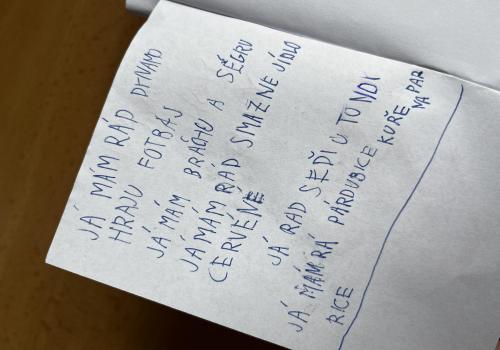 JÁ MÁM RÁD DYNAMO
HRAJU FOTBAJ
JÁ MÁM BRÁCHU A SÉGRU
JÁ MÁM RÁD SMAZNÉ JÍDLO
CERVÉNÉ
JÁ RAD SĚDÍ U TONDI
JÁ MÁM RÁ PÁRDUBICE KUŘE NA PAP
RICE